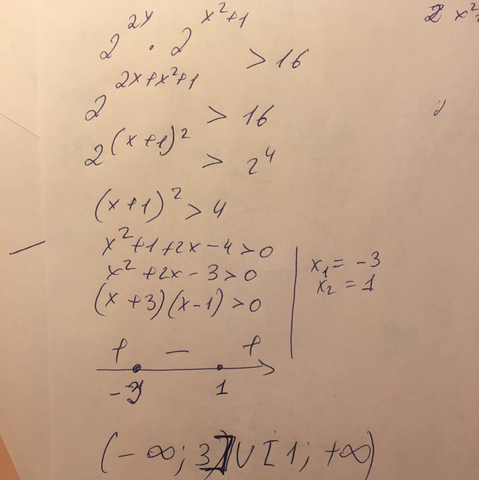 2^{2x} · 2^{x²+1} > 16
2^{2x+x²+1} > 16
2^{(x+1)²} > 2⁴
(x+1)² > 4
x²+1+2x-4>0
x²+2x-3>0
(x+3)(x-1)>0
x₁ = -3
x₂ = 1
+ - +
-3 1
(-∞; 3]∪[1; +∞)
2 x²